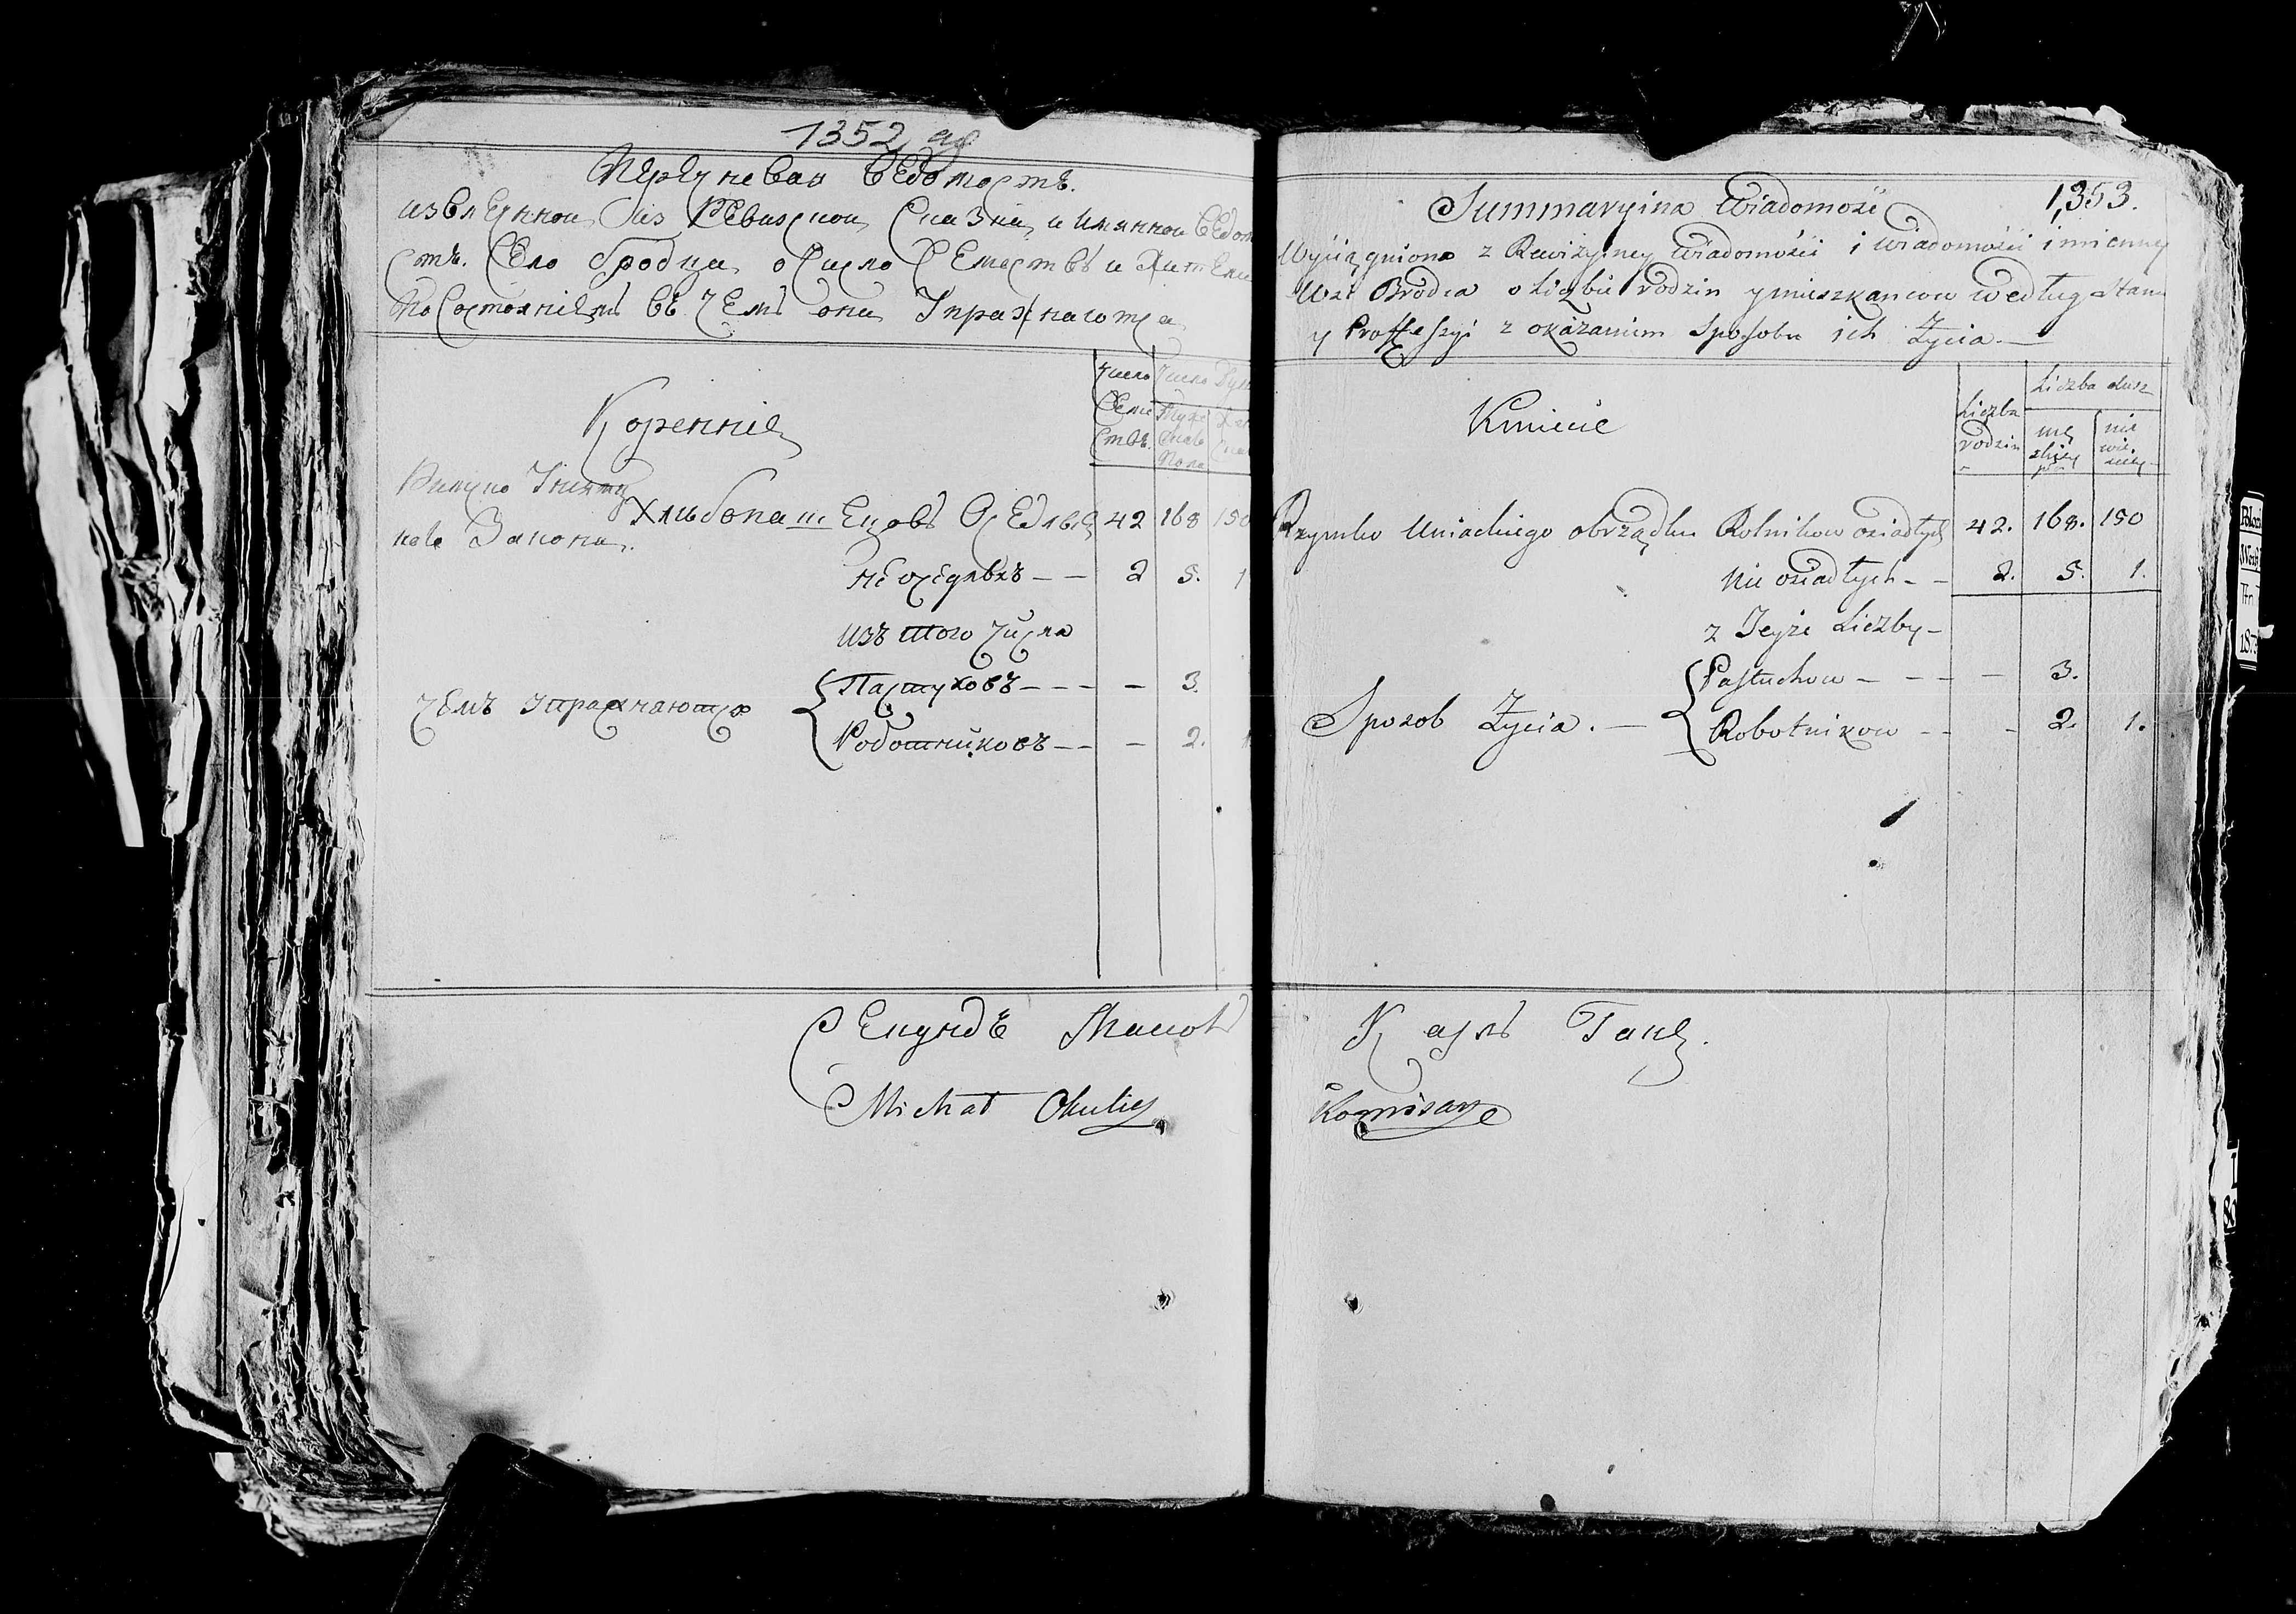 1352
Перечневая Ведомость.
извлеченная из Ревизской Сказки и имянной Ведом
сти. Село Бродца о числе Семействъ и Жители
по состояниемъ въ чемъ они упражнаются
Коренние
Число
Семе
ствъ.
Число Душ
Муже
ска
Пола
Римско Унитц
каго Закона.
Хлѣбопашецовъ Оседлыхъ 42 168 150
Неоседлыхъ - - 2 5. 1
изъ того числа
чемъ упражнаются
Пастуховъ - - - - 3.
Роботниковъ - - - 2.
Секундъ Маиоръ
Michał Okulicz
1,353.
Summaryina Wiadomość
Wyciągniona z Rewizyiney Wiadomości i wiadomości imienney
Wsi Brodca o liczbie rodzin y mieszkancow według stanu
y Proffeszyi z okazaniem Sposobu ich Zycia.—
Kmiecie
Liczba
rodzin
Liczba dusz
mę
zkiey
p
nie
wie.
sciey
Rzymko Uniackiego obrządku Rolnikow osiadłych 42. 168. 150
Nie osiadłych - - 2. 5. 1.
z Teyże Liczby -
Sposob Zycia. —
Pastuchow - - - - 3.
Robotnikow - - - 2. 1.
Карлъ Гаке.
Komisarz